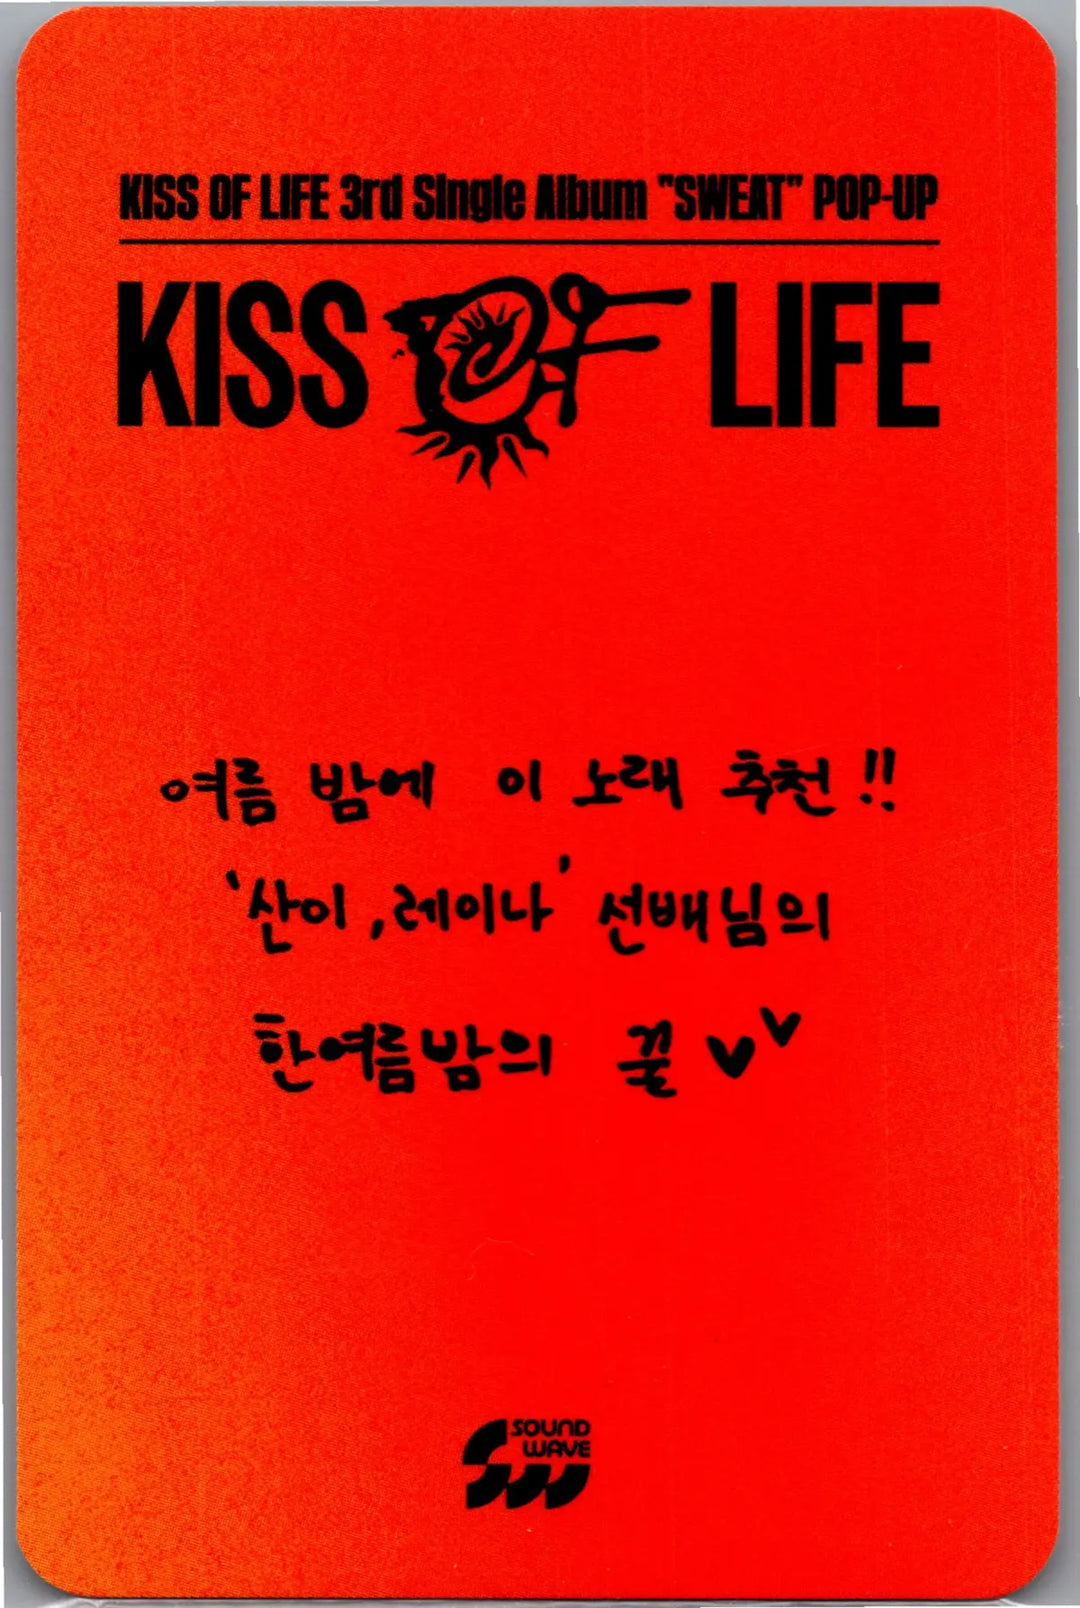 KISS OF LIFE 3rd Single Album "SWEAT" POP-UP
KISS OF LIFE
여름 밤에 이 노래 추천!!
'산이, 레이나' 선배님의
한여름밤의 꿀
SOUND
WAVE